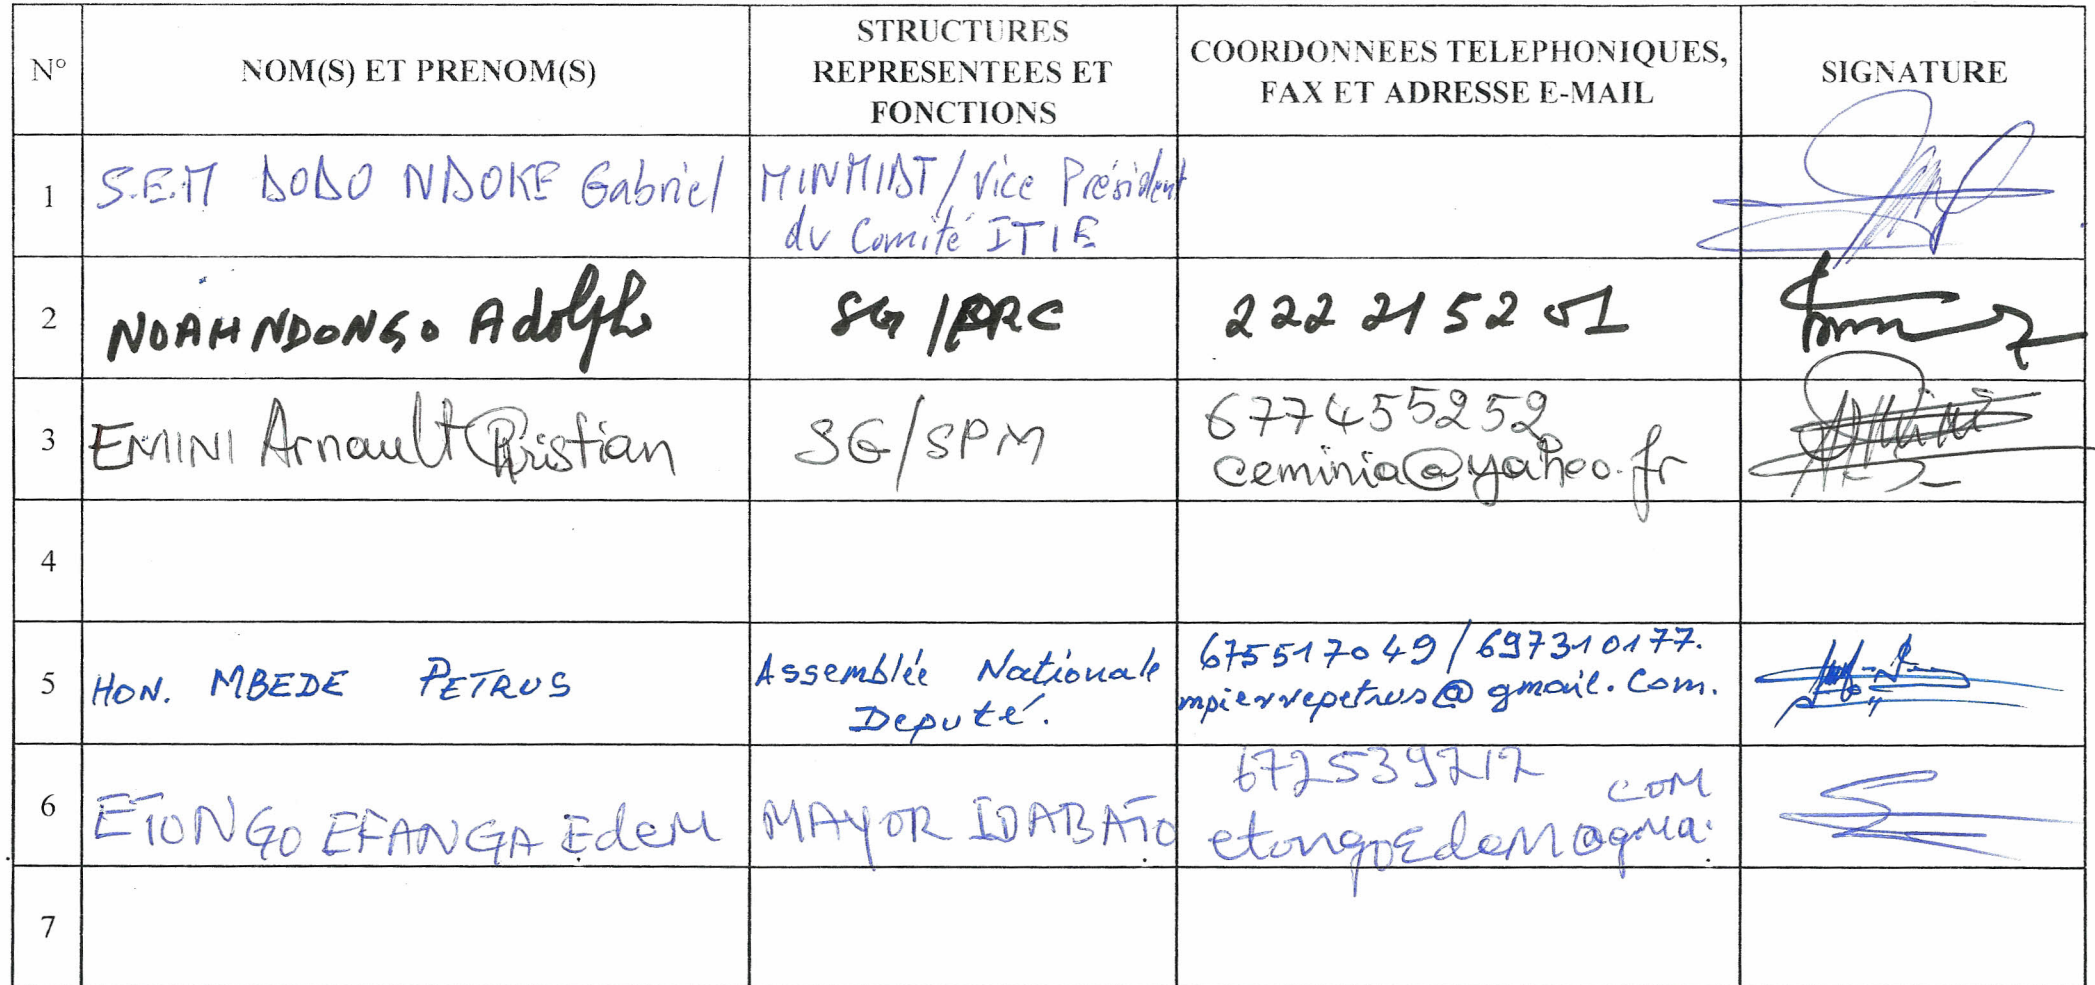 N°
NOM(S) ET PRENOM(S)
STRUCTURES
REPRESENTEES ET
FONCTIONS
COORDONNEES TELEPHONIQUES,
FAX ET ADRESSE E-MAIL
SIGNATURE
1
S.E.M DODO NDOKE Gabriel
MINMIDT / Vice Président
du Comité ITIE
2
NOAH NDONGO Adolphe
SG /PRC
222 21 52 01
3
EMINI Arnault Christian
SG/SPM
677455252
ceminia@yahoo.fr
4
5
HON. MBEDE PETRUS
Assemblée Nationale
Deputé.
675517049 / 697310177.
mpierrepetrus@gmail.com.
6
ETONGO EFANGA Edem
MAYOR IDABATO
672539212
COM
etongoEdem@gmai.
7